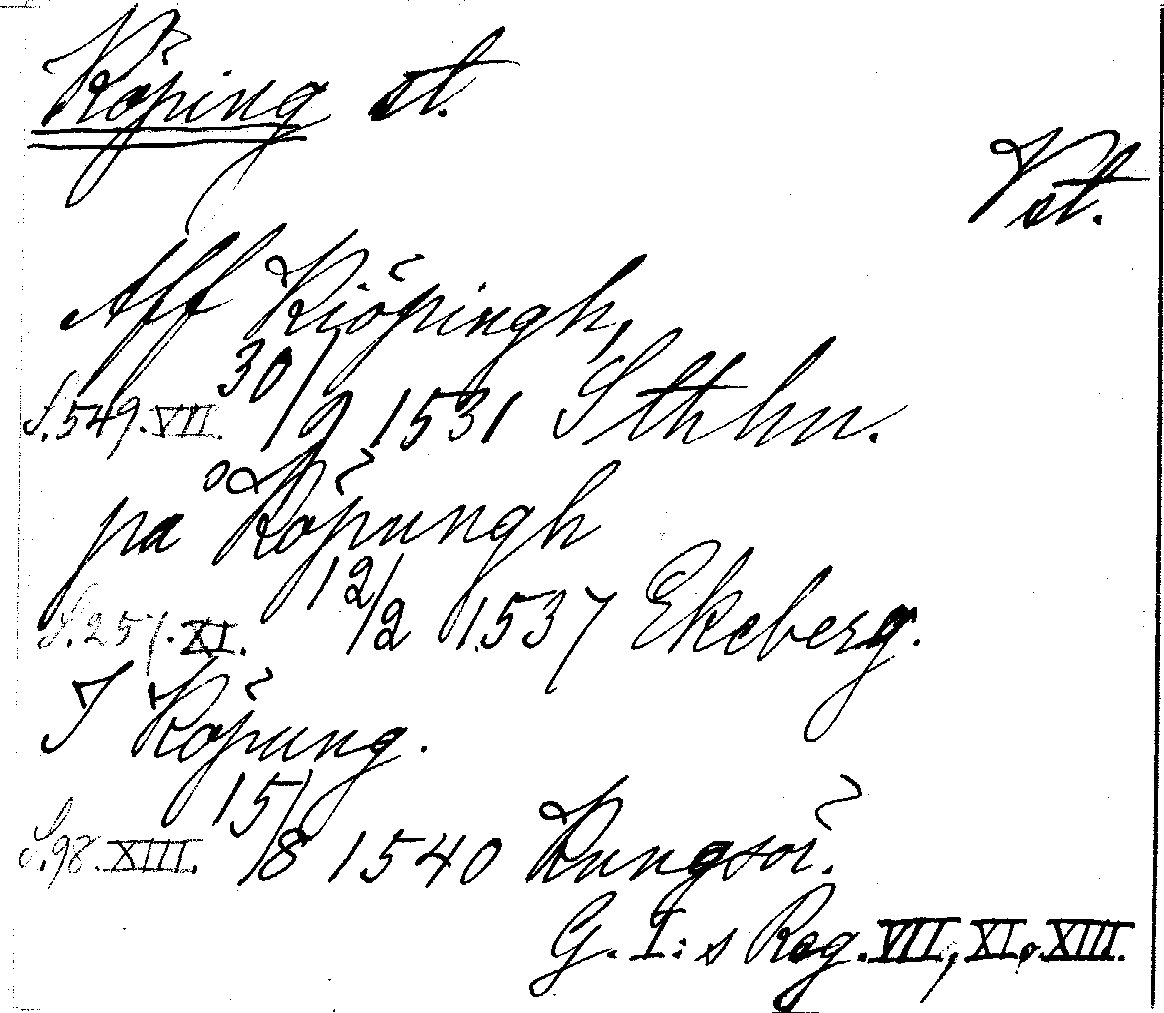 Köping st.
Vst.
Aff Kiöpingh,
S. 549. VII. 30/9 1531 Sthlm.
på Köpungh
S. 257. XI. 12/2 1537 Ekeberg.
I Köpung.
S. 98. XIII. 15/8 1540 Kungsör.
G. I:s Reg. VII, XI, XIII.